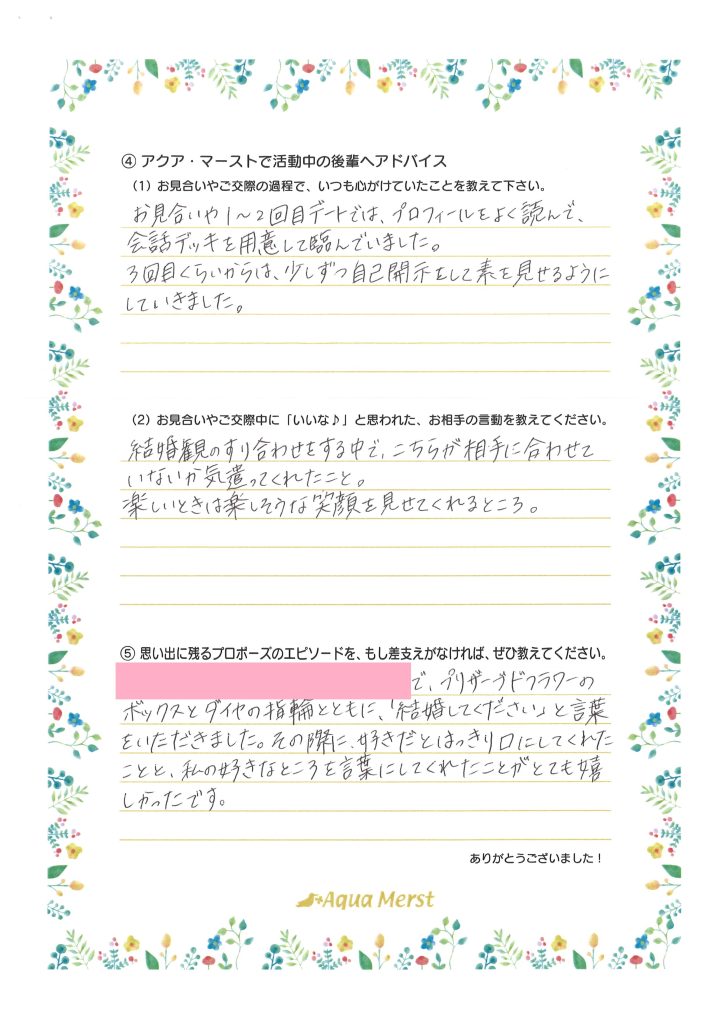 ④ アクア・マーストで活動中の後輩へアドバイス
（1）お見合いやご交際の過程で、いつも心がけていたことを教えて下さい。
お見合いや1〜2回目デートでは、プロフィールをよく読んで、
会話デッキを用意して臨んでいました。
3回目くらいからは、少しずつ自己開示をして素を見せるように
していきました。
（2）お見合いやご交際中に「いいな♪」と思われた、お相手の言動を教えてください。
結婚観のすり合わせをする中で、こちらが相手に合わせて
いないか気遣ってくれたこと。
楽しいときは楽しそうな笑顔を見せてくれるところ。
⑤ 思い出に残るプロポーズのエピソードを、もし差支えがなければ、ぜひ教えてください。
で、プリザーブドフラワーの
ボックスとダイヤの指輪とともに、「結婚してください」と言葉
をいただきました。その際に、好きだとはっきり口にしてくれた
ことと、私の好きなところを言葉にしてくれたことがとても嬉
しかったです。
ありがとうございました！
Aqua Merst